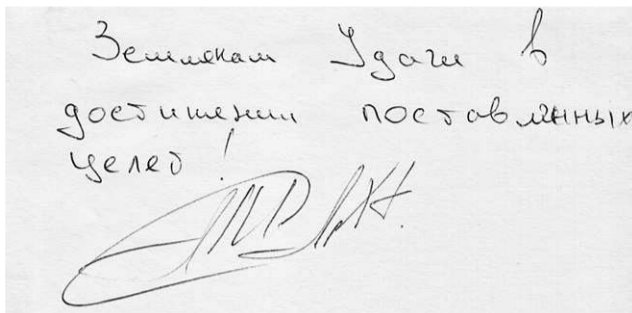 Землякам Удачи в
достижении поставленных
целей!